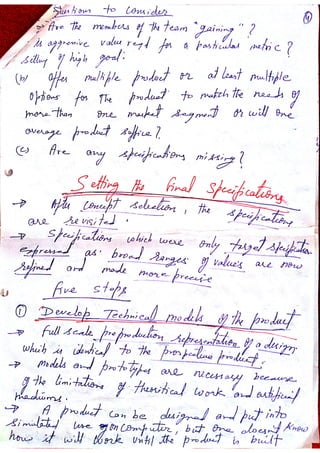 Questions to consider
④
Are the members of the team "gaining"?
Is aggressive value reqd for a particular metric?
setting of high goal.
(b) Offer multiple product or at least multiple
options for the product to match the needs of
more than one market segment or will one
average product suffice?
(c) Are any specifications missing?
Setting the final specifications
→ After concept selection, the specifications
are revisited.
→ Specifications which were only target specification
expressed as broad ranges of values are now
refined and made more precise
five steps
① Develop Technical models of the product
→ full scale preproduction representation of a design
which is identical to the prospective product.
→ Models and prototypes are necessary because
of the limitations of theoritical work and artificial
mediums.
→ A product can be designed and put into
simulated use on computer, but one doesn't know
how it will work until the product is built